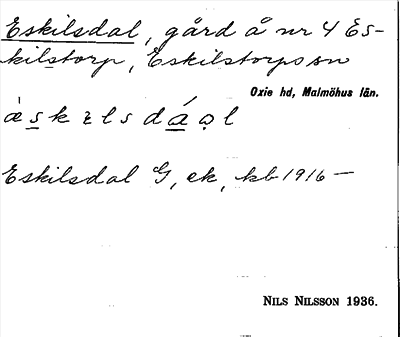 Eskilsdal, gård å nr 4 Es-
kilstorp, Eskilstorps sn
Oxie hd, Malmöhus län.
æ̀ s k ɪ l s d á ɑ l
Eskilsdal G, ek, kb 1916 —
NILS NILSSON 1936.